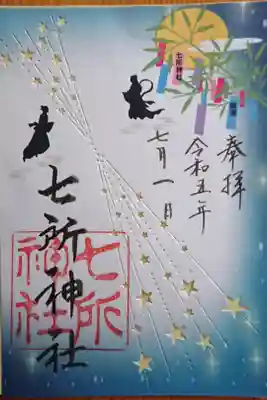 奉拝
令和五年
七月一日
七所神社
七所神社
七所
神社